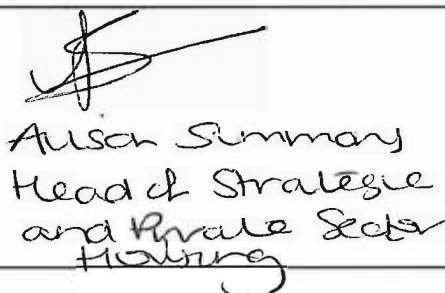 Alison Simmons
Head of Strategic
and Private Sector
Housing